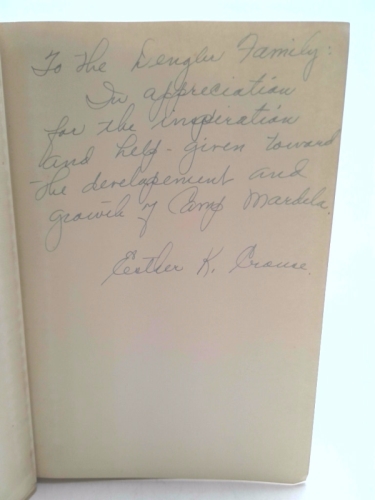 To the Dengler Family:
In appreciation
for the inspiration
and help - given toward
the developement and
growth of Camp Mardela.
Esther K. Crouse.